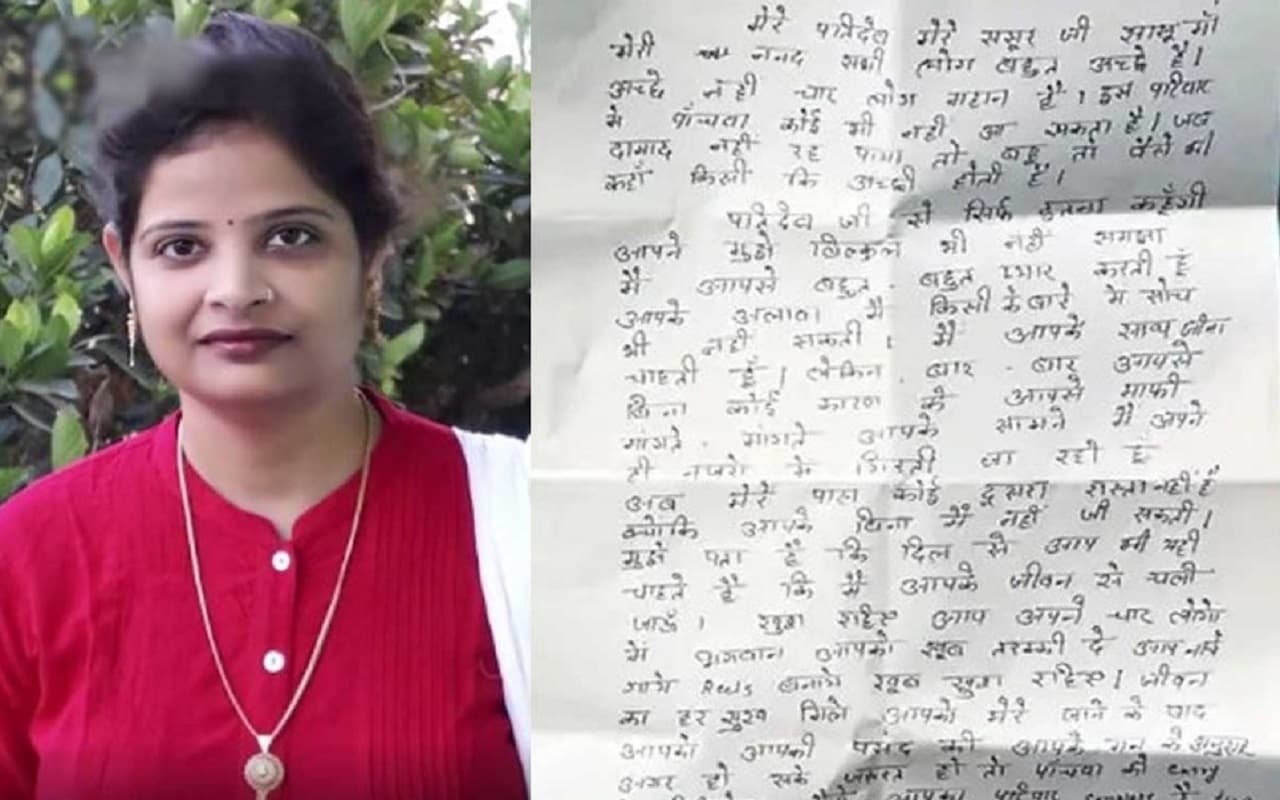 मेरे पतिदेव मेरे ससुर जी सासू माँ
मेरी ननद सभी लोग बहुत अच्छे है।
अच्छे नही चार लोग महान है। इस परिवार
मे पाँचवा कोई भी नही आ सकता है। जब
दामाद नही रह पाया तो बहु तो वैसे भी
कहाँ किसी कि अच्छी होती है।
पतिदेव जी से सिर्फ इतना कहूँगी
आपने मुझे बिल्कुल भी नही समझा
मै आपसे बहुत - बहुत प्यार करती हूँ
आपके अलावा मै किसी के बारे मे सोच
भी नही सकती। मै आपके साथ जीना
चाहती हूँ। लेकिन बार - बार आपसे
बिना कोई कारण के आपसे माफी
मांगते - मांगते आपके सामने मै अपने
ही नजरो मे गिरती जा रही हूँ
अब मेरे पास कोई दूसरा रास्ता नही है
क्योकि आपके बिना मै नही जी सकती।
मुझे पता है कि दिल से आप भी यही
चाहते है कि मै आपके जीवन से चली
जाऊँ। खुश रहिए आप अपने चार लोगो
मे भगवान आपको खूब तरक्की दे आप नाचे
गाये Reels बनाये खूब खुश रहिए। जीवन
का हर सुख मिले आपको मेरे जाने के बाद
आपको आपकी पसंद की आपके मन के अनुसार
अगर हो सके जरूरत हो तो पाँचवा की entry
आपका परिवार